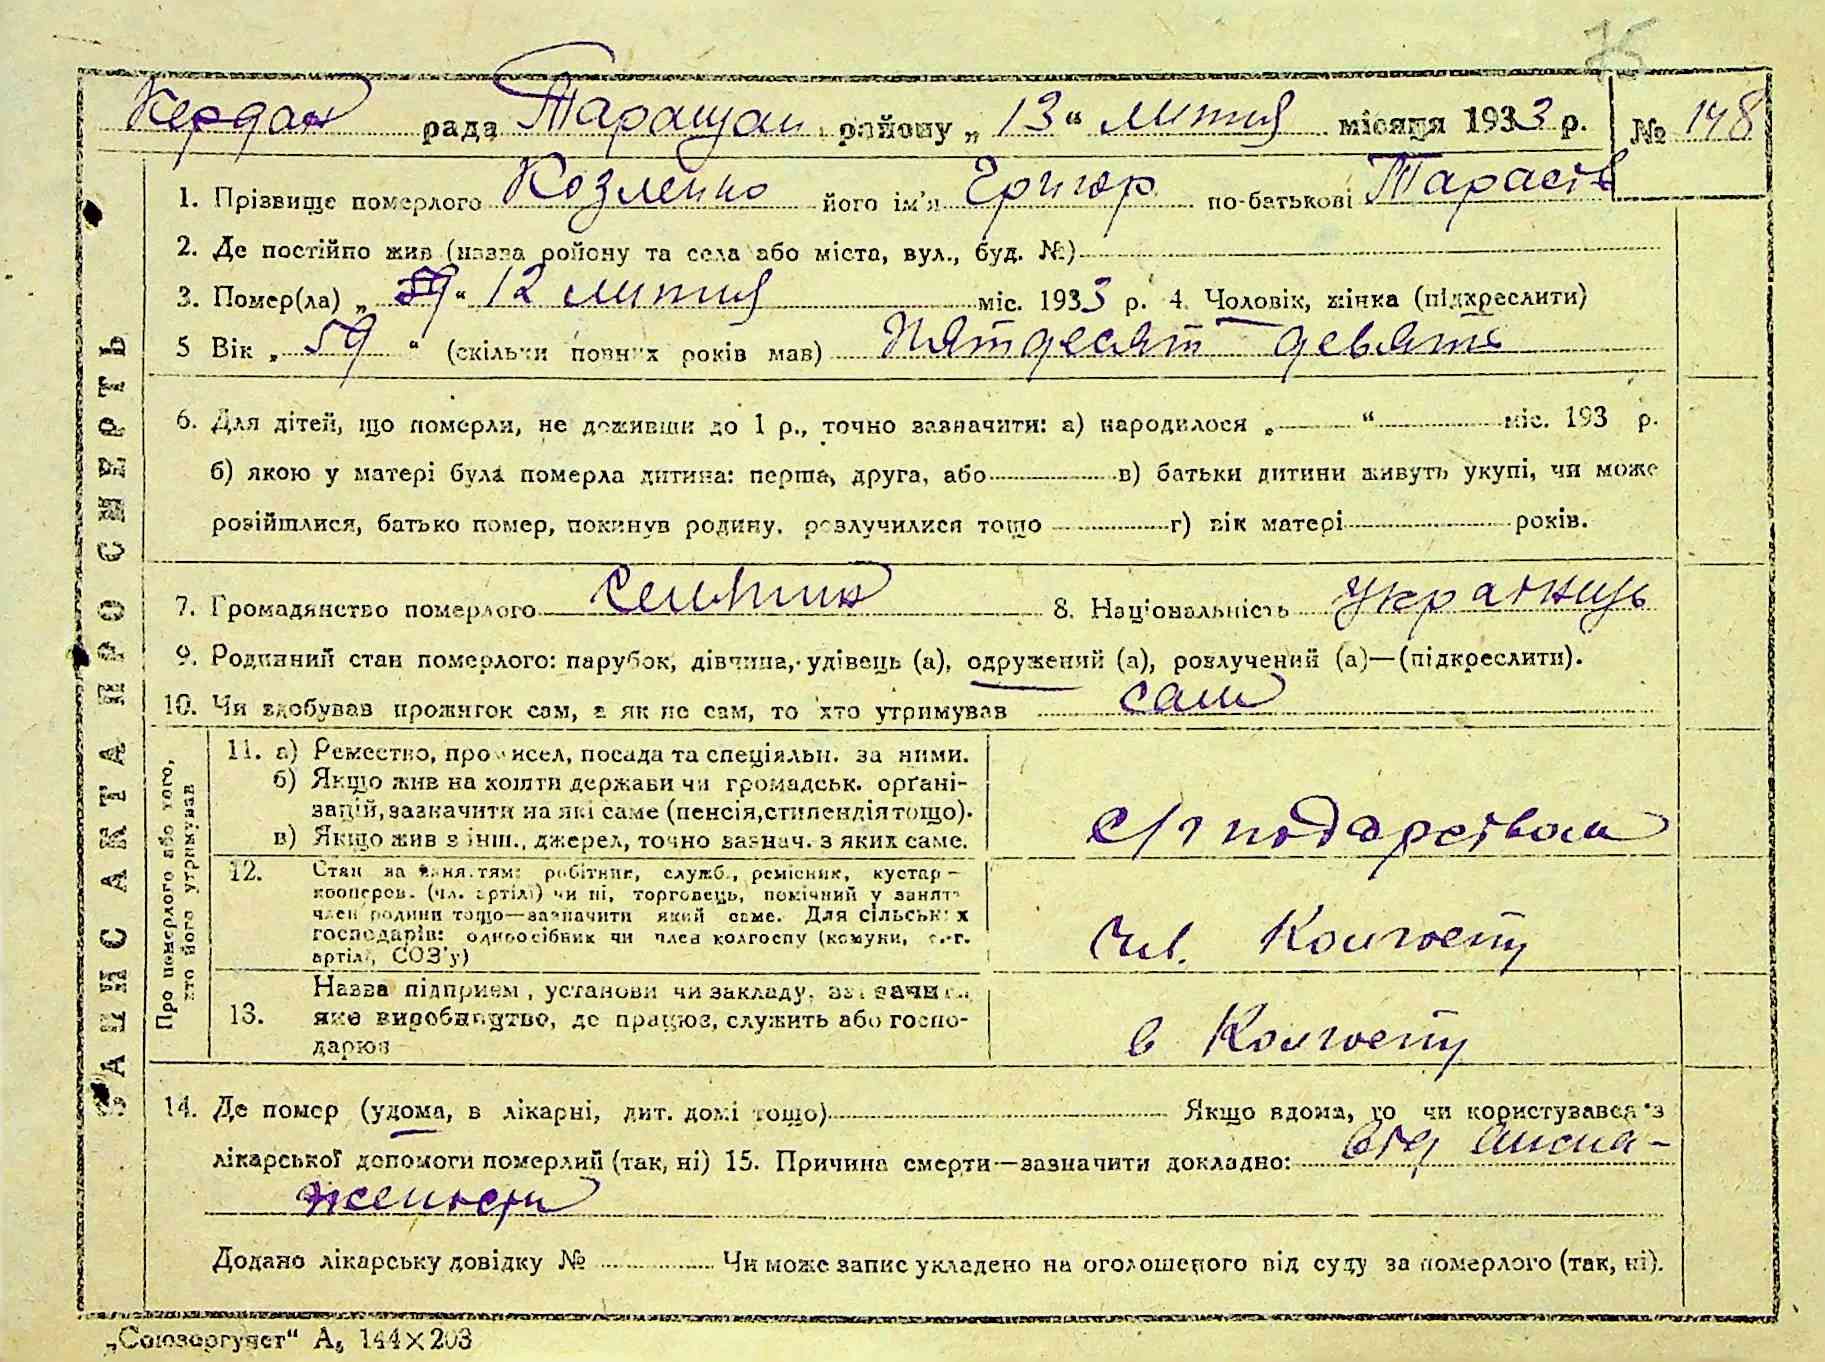 75
Кердан рада Таращан району „13“ липня місяця 1933 р. № 148
1. Прізвище померлого Козленко його ім'я Григор по-батькові Тарасів
2. Де постійно жив (назва району та села або міста, вул., буд. №)
3. Помер(ла) „ “ 12 липня міс. 1933 р. 4. Чоловік, жінка (підкреслити)
5 Вік „59“ (скільки повних років мав) Пятдесят девять
6. Для дітей, що померли, не доживши до 1 р., точно зазначити: а) народилося „ “ міс. 193 р.
б) якою у матері була померла дитина: перша, друга, або в) батьки дитини живуть укупі, чи може
розійшлися, батько помер, покинув родину, розлучилися тощо г) вік матері років.
7. Громадянство померлого 8. Національність українць
9. Родинний стан померлого: парубок, дівчина, удівець (а), одружений (а), розлучений (а)—(підкреслити).
10. Чи здобував прожиток сам, а як не сам, то хто утримував сам
ЗАПИС АКТА ПРО СМЕРТЬ
Про померлого або того,
хто його утримував
11. а) Ремество, промисел, посада та спеціяльн. за ними.
б) Якщо жив на кошти держави чи громадськ. орґані-
зацій, зазначити на які саме (пенсія, стипендія тощо).
в) Якщо жив з інш., джерел, точно зазнач. з яких саме.
с/господарством
12. Стан за заняттям: робітник, служб., ремісник, кустар-
кооперов. (чл. артілі) чи ні, торговець, помічний у занятт
член родини тощо—зазначити який саме. Для сільських
господарів: одноосібник чи член колгоспу (комуни, с.-г.
артілі, СОЗ'у)
Чл. Колгоспу
13. Назва підприєм., установи чи закладу, зазначити
яке виробництво, де працює, служить або госпо-
дарює
в Колгоспу
14. Де помер (удома, в лікарні, дит. домі тощо) Якщо вдома, то чи користувався з
лікарської допомоги померлий (так, ні) 15. Причина смерти—зазначити докладно: від висна-
жености
Додано лікарську довідку № Чи може запис укладено на оголошеного від суду за померлого (так, ні).
„Союзоргучет“ А₅ 144×203